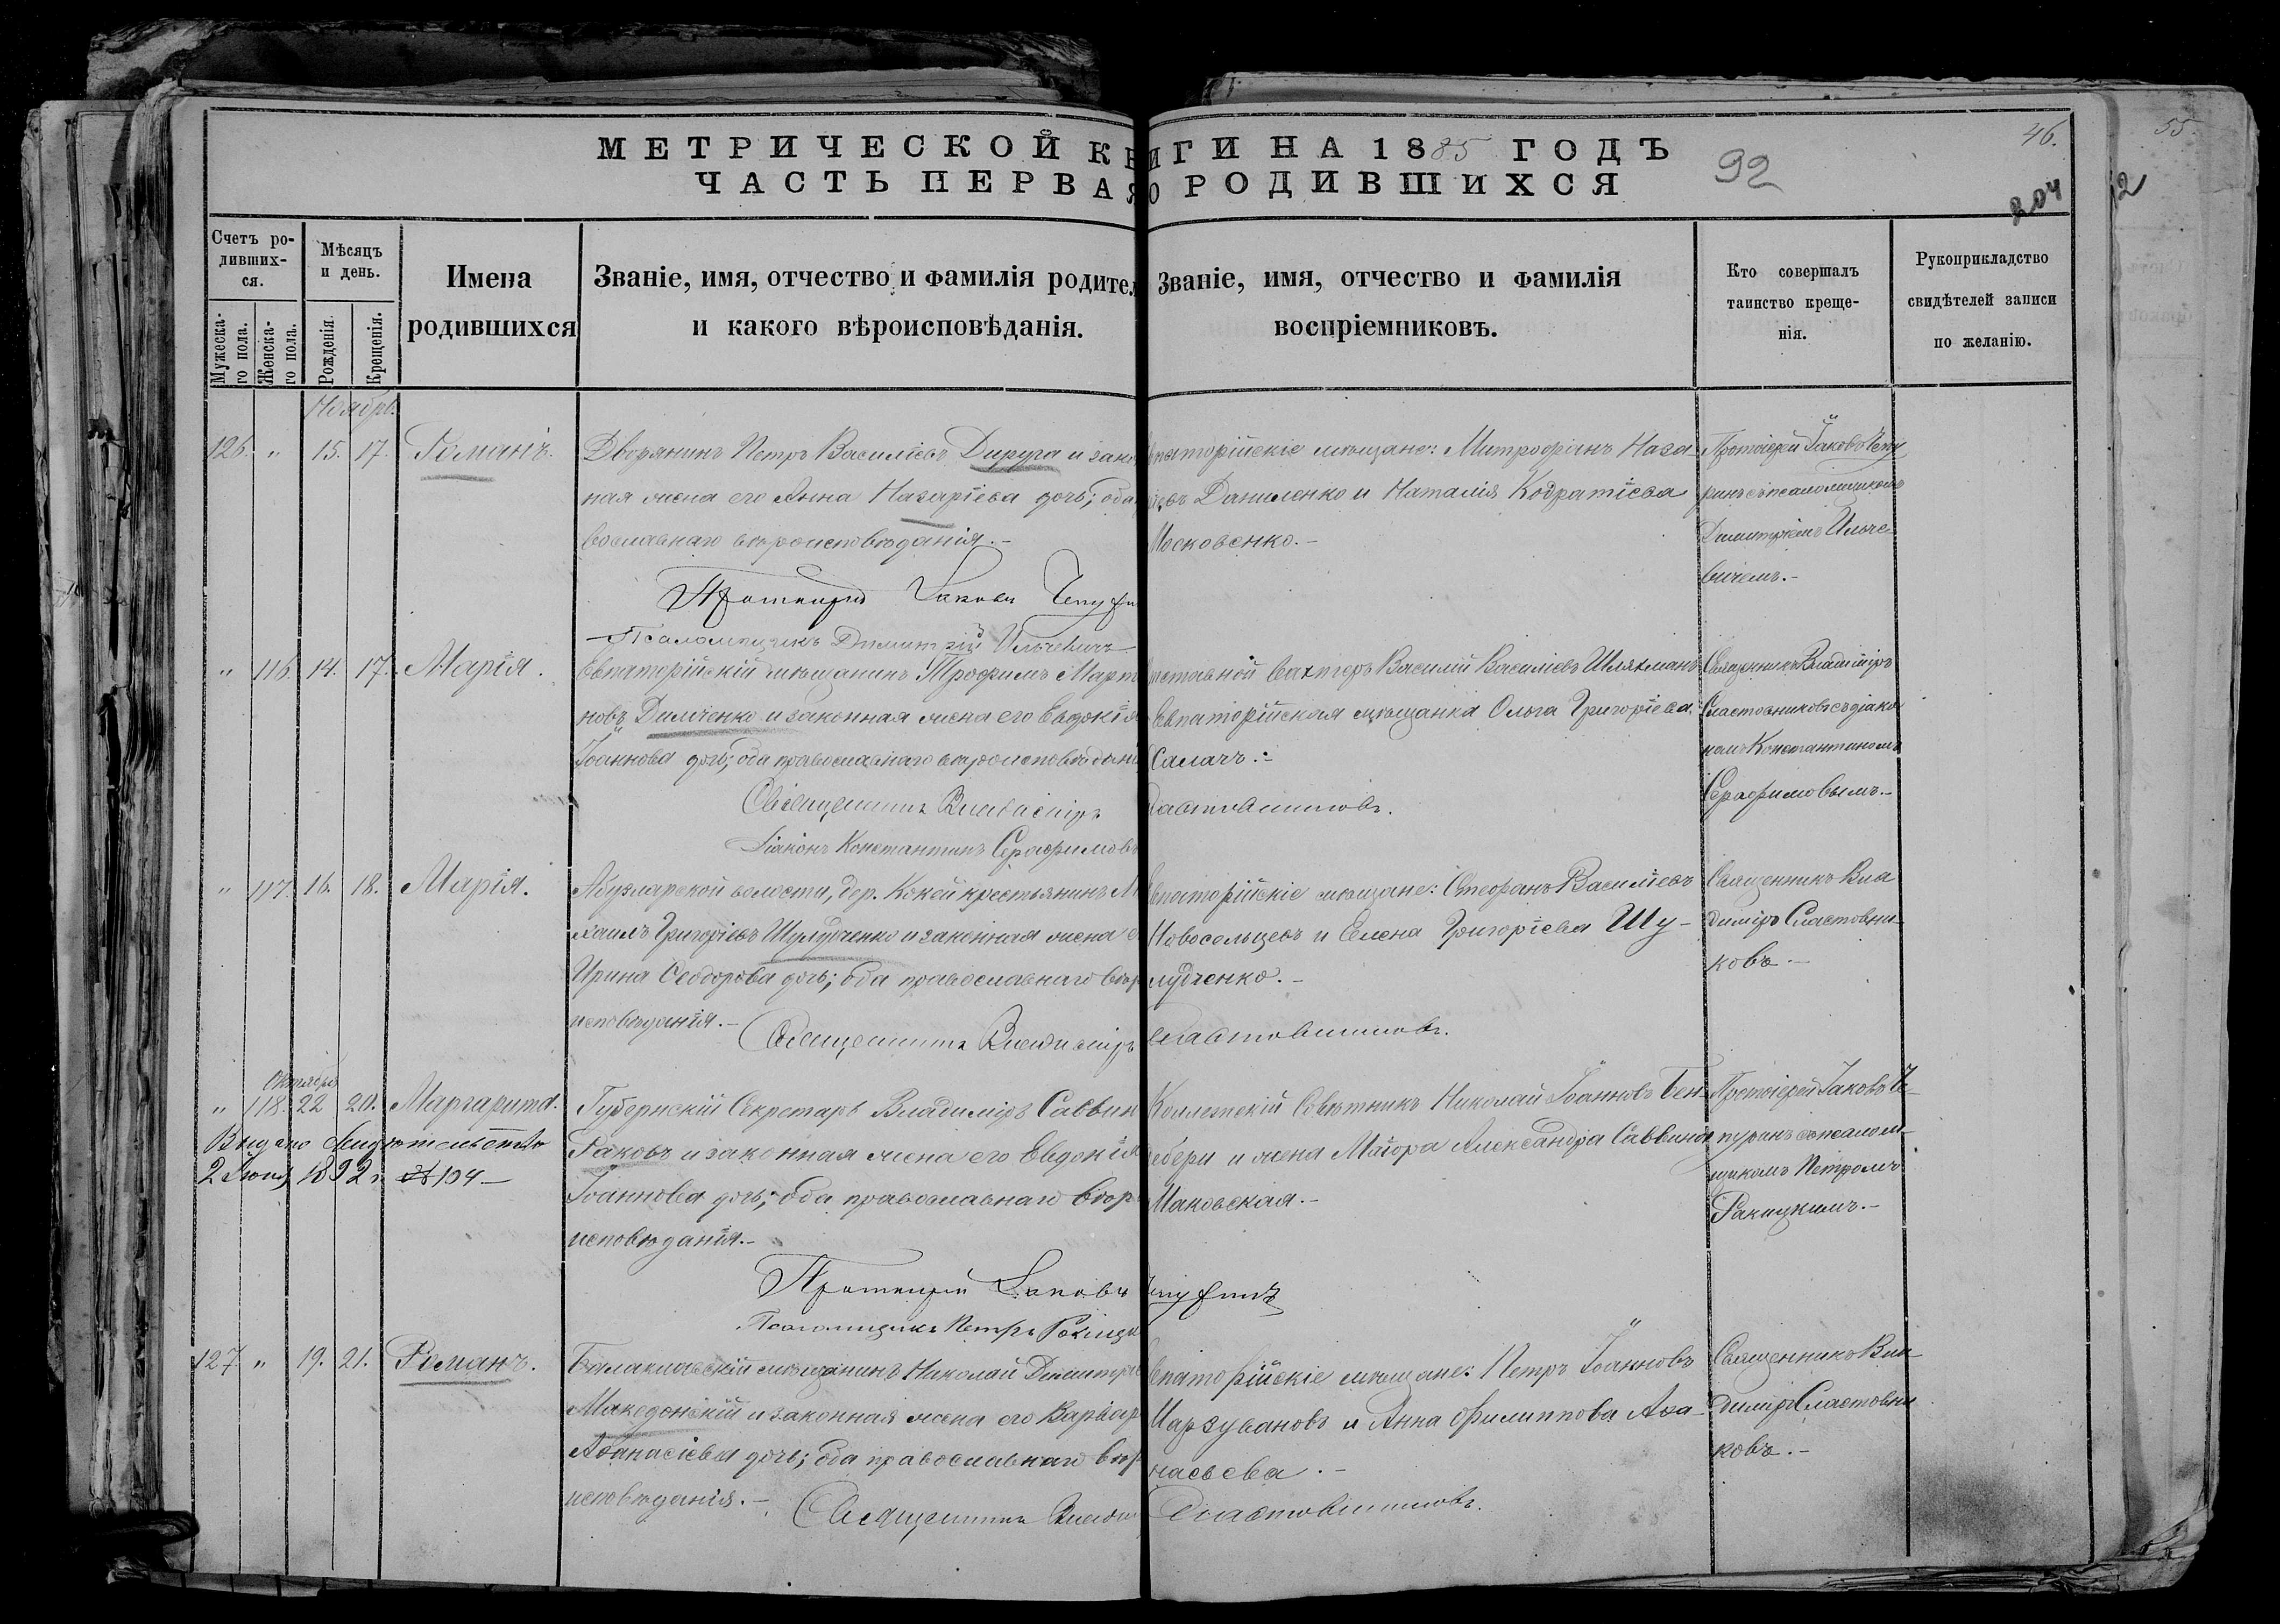 МЕТРИЧЕСКОЙ КН ИГИ НА 1885 ГОДЪ
ЧАСТЬ ПЕРВАЯ О РОДИВШИХСЯ
92
46.
204
55.
12
Счетъ ро-
дивших-
ся.
Мужеска-
го пола.
Женска-
го пола.
Мѣсяцъ
и день.
Рожденія.
Крещенія.
Имена
родившихся
Званіе, имя, отчество и фамилія родител
и какого вѣроисповѣданія.
Званіе, имя, отчество и фамилія
воспріемниковъ.
Кто совершалъ
таинство креще-
нія.
Рукоприкладство
свидѣтелей записи
по желанію.
Ноябрь.
126. " 15. 17. Романъ.
Дворянинъ Петръ Василіевъ Дируга и закон
ная жена его Анна Назаріева дочь; оба
вославнаго вѣроисповѣданія.-
Протоіерей Іаковъ Чепури
Псаломщикъ Димитрій Ильчевичъ
впаторійскіе мѣщане: Митрофанъ Наза-
ріевъ Даниленко и Наталія Кодратіева
Московенко.-
Протоіерей Іаковъ Чепу
ринъ съ псаломщикомъ
Димитріемъ Ильче-
вичемъ.-
" 116. 14. 17. Марія.
Евпаторійскій мѣщанинъ Трофимъ Март
новъ Димченко и законная жена его Евдокія
Іоаннова дочь; оба православнаго вѣроисповѣдані
Священникъ Владиміръ
Діаконъ Константинъ Серафимовъ
тставной вахтеръ Василій Василіевъ Шляхманъ
Евпаторійская мѣщанка Ольга Григоріева
Салачъ.-
Сластовниковъ.
Священникъ Владиміръ
Сластовниковъ съ діако
номъ Константиномъ
Серафимовымъ.-
" 117. 16. 18. Марія.
Абузларской волости, дер. Кокей крестьянинъ М
хаилъ Григоріевъ Шулудченко и законная жена е
Ирина Ѳеодорова дочь; оба православнаго вѣр
исповѣданія.-
Священникъ Владиміръ
Евпаторійскіе мѣщане: Стефанъ Василіевъ
Новосельцевъ и Елена Григоріева Шу-
лудченко.-
Сластовниковъ.
Священникъ Вла
диміръ Сластовни-
ковъ.-
Октября
" 118. 22 20. Маргарита.
Выдано свидѣтельство
2 Іюня 1892 г. № 104-
Губернскій Секретарь Владиміръ Саввин
Раковъ и законная жена его Евдокія
Іоаннова дочь; оба православнаго вѣр
исповѣданія.-
Протоіерей Іаковъ
Псаломщикъ Петръ Ракицк
Коллежскій Совѣтникъ Николай Іоанновъ Бен-
дебери и жена Маіора Александра Саввина
Маковская.-
Чепуринъ
Протоіерей Іаковъ Че-
пуринъ съ псалом-
щикомъ Петромъ
Ракицкимъ.-
127 " 19. 21. Романъ.
Балаклавскій мѣщанинъ Николай Димитріе
Македонскій и законная жена его Варвар
Аѳанасіева дочь; оба православнаго вѣр
исповѣданія.-
Священникъ Влади
Евпаторійскіе мѣщане: Петръ Іоанновъ
Марзувановъ и Анна Филиппова Аѳа-
насьева.-
Сластовниковъ.
Священникъ Вла-
диміръ Сластовни
ковъ.-